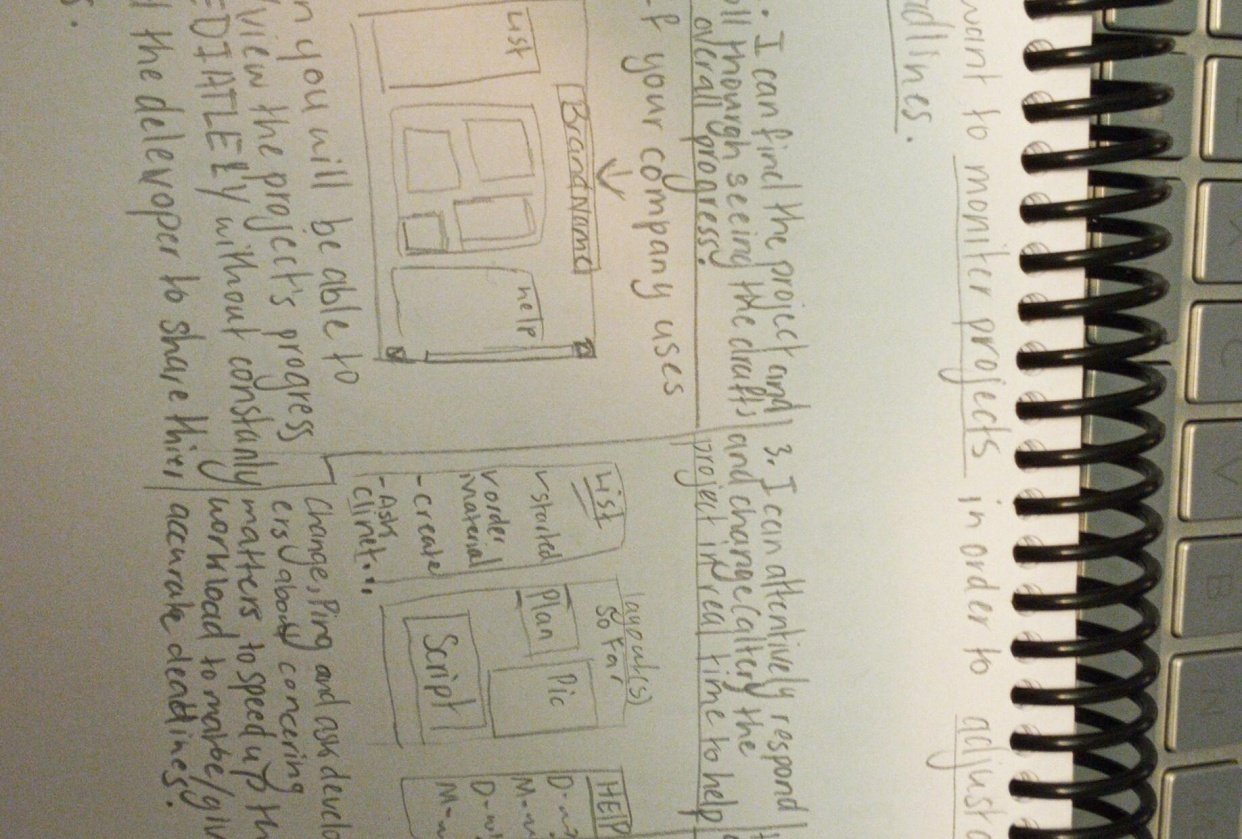 want to moniter projects in order to adjust
dlines.
. I can find the project and
oll though seeing the drafts
overall progress.
f your company uses
BrandName
List
help
n you will be able to
view the project's progress
EDIATLEY without constantly
the delevoper to share thier
s.
3. I can attentively respond
and change (alter) the
project in real time to help
List
v started
v order
material
- create
- Ask
clinet...
layout(s)
so far
Plan
Pic
Script
HELP
D-
M-
D-
M-
Change, Ping and ask develo
ers about concering
matters to speed up th
workload to make/giv
accurate deadlines.
X
C
V
B
N